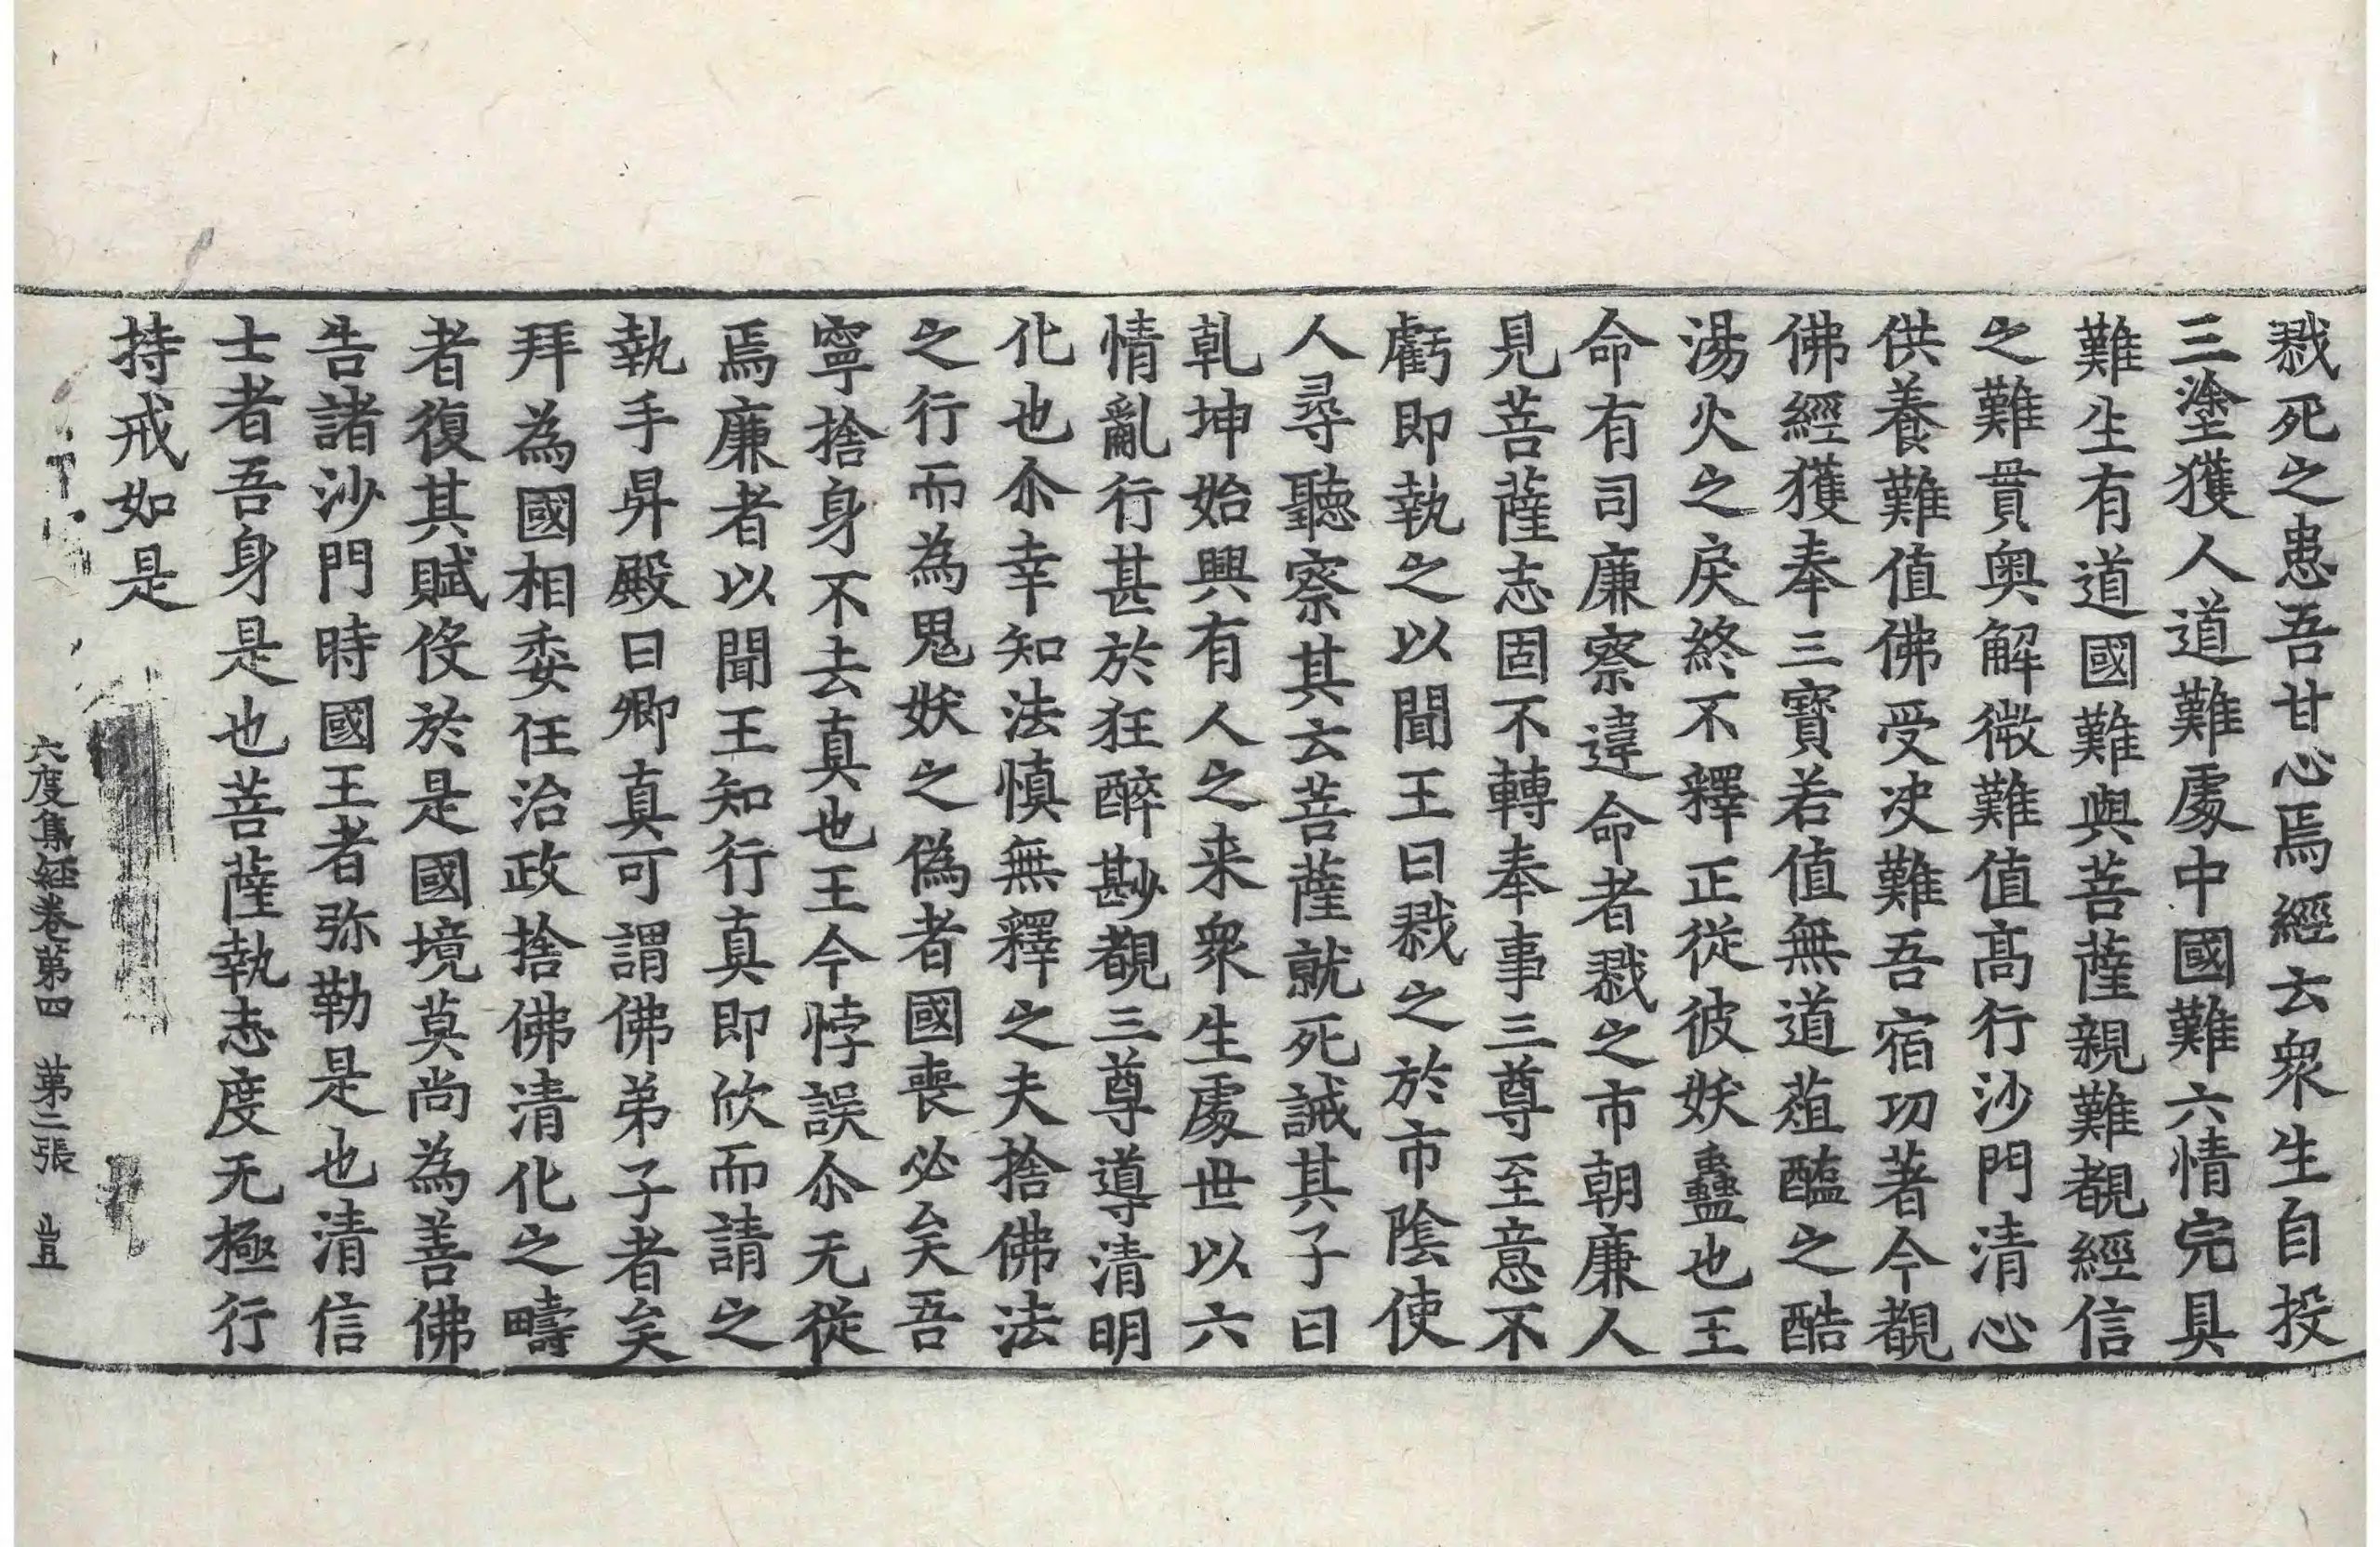 戮死之患吾甘心焉經云衆生自投
三塗獲人道難處中國難六情完具
難生有道國難與菩薩親難覩經信
之難貫奧解微難值髙行沙門清心
供養難值佛受决難吾宿功著今覩
佛經獲奉三寶若值無道葅醢之酷
湯火之戾終不釋正從彼妖蠱也王
命有司廉察違命者戮之市朝廉人
見菩薩志固不轉奉事三尊至意不
虧即執之以聞王曰戮之於市陰使
人尋聽察其云菩薩就死誡其子曰
乹坤始興有人之来衆生處世以六
情亂行甚於狂醉尠覩三尊導清明
化也尒幸知法慎無釋之夫捨佛法
之行而為鬼妖之偽者國喪必矣吾
寧捨身不去真也王今悖誤尒无從
焉廉者以聞王知行真即欣而請之
執手昇殿曰卿真可謂佛弟子者矣
拜為國相委任治政捨佛清化之疇
者復其賦伇於是國境莫尚為善佛
告諸沙門時國王者弥勒是也清信
士者吾身是也菩薩執志度无極行
持戒如是
六度集經卷第四　第三張　豈